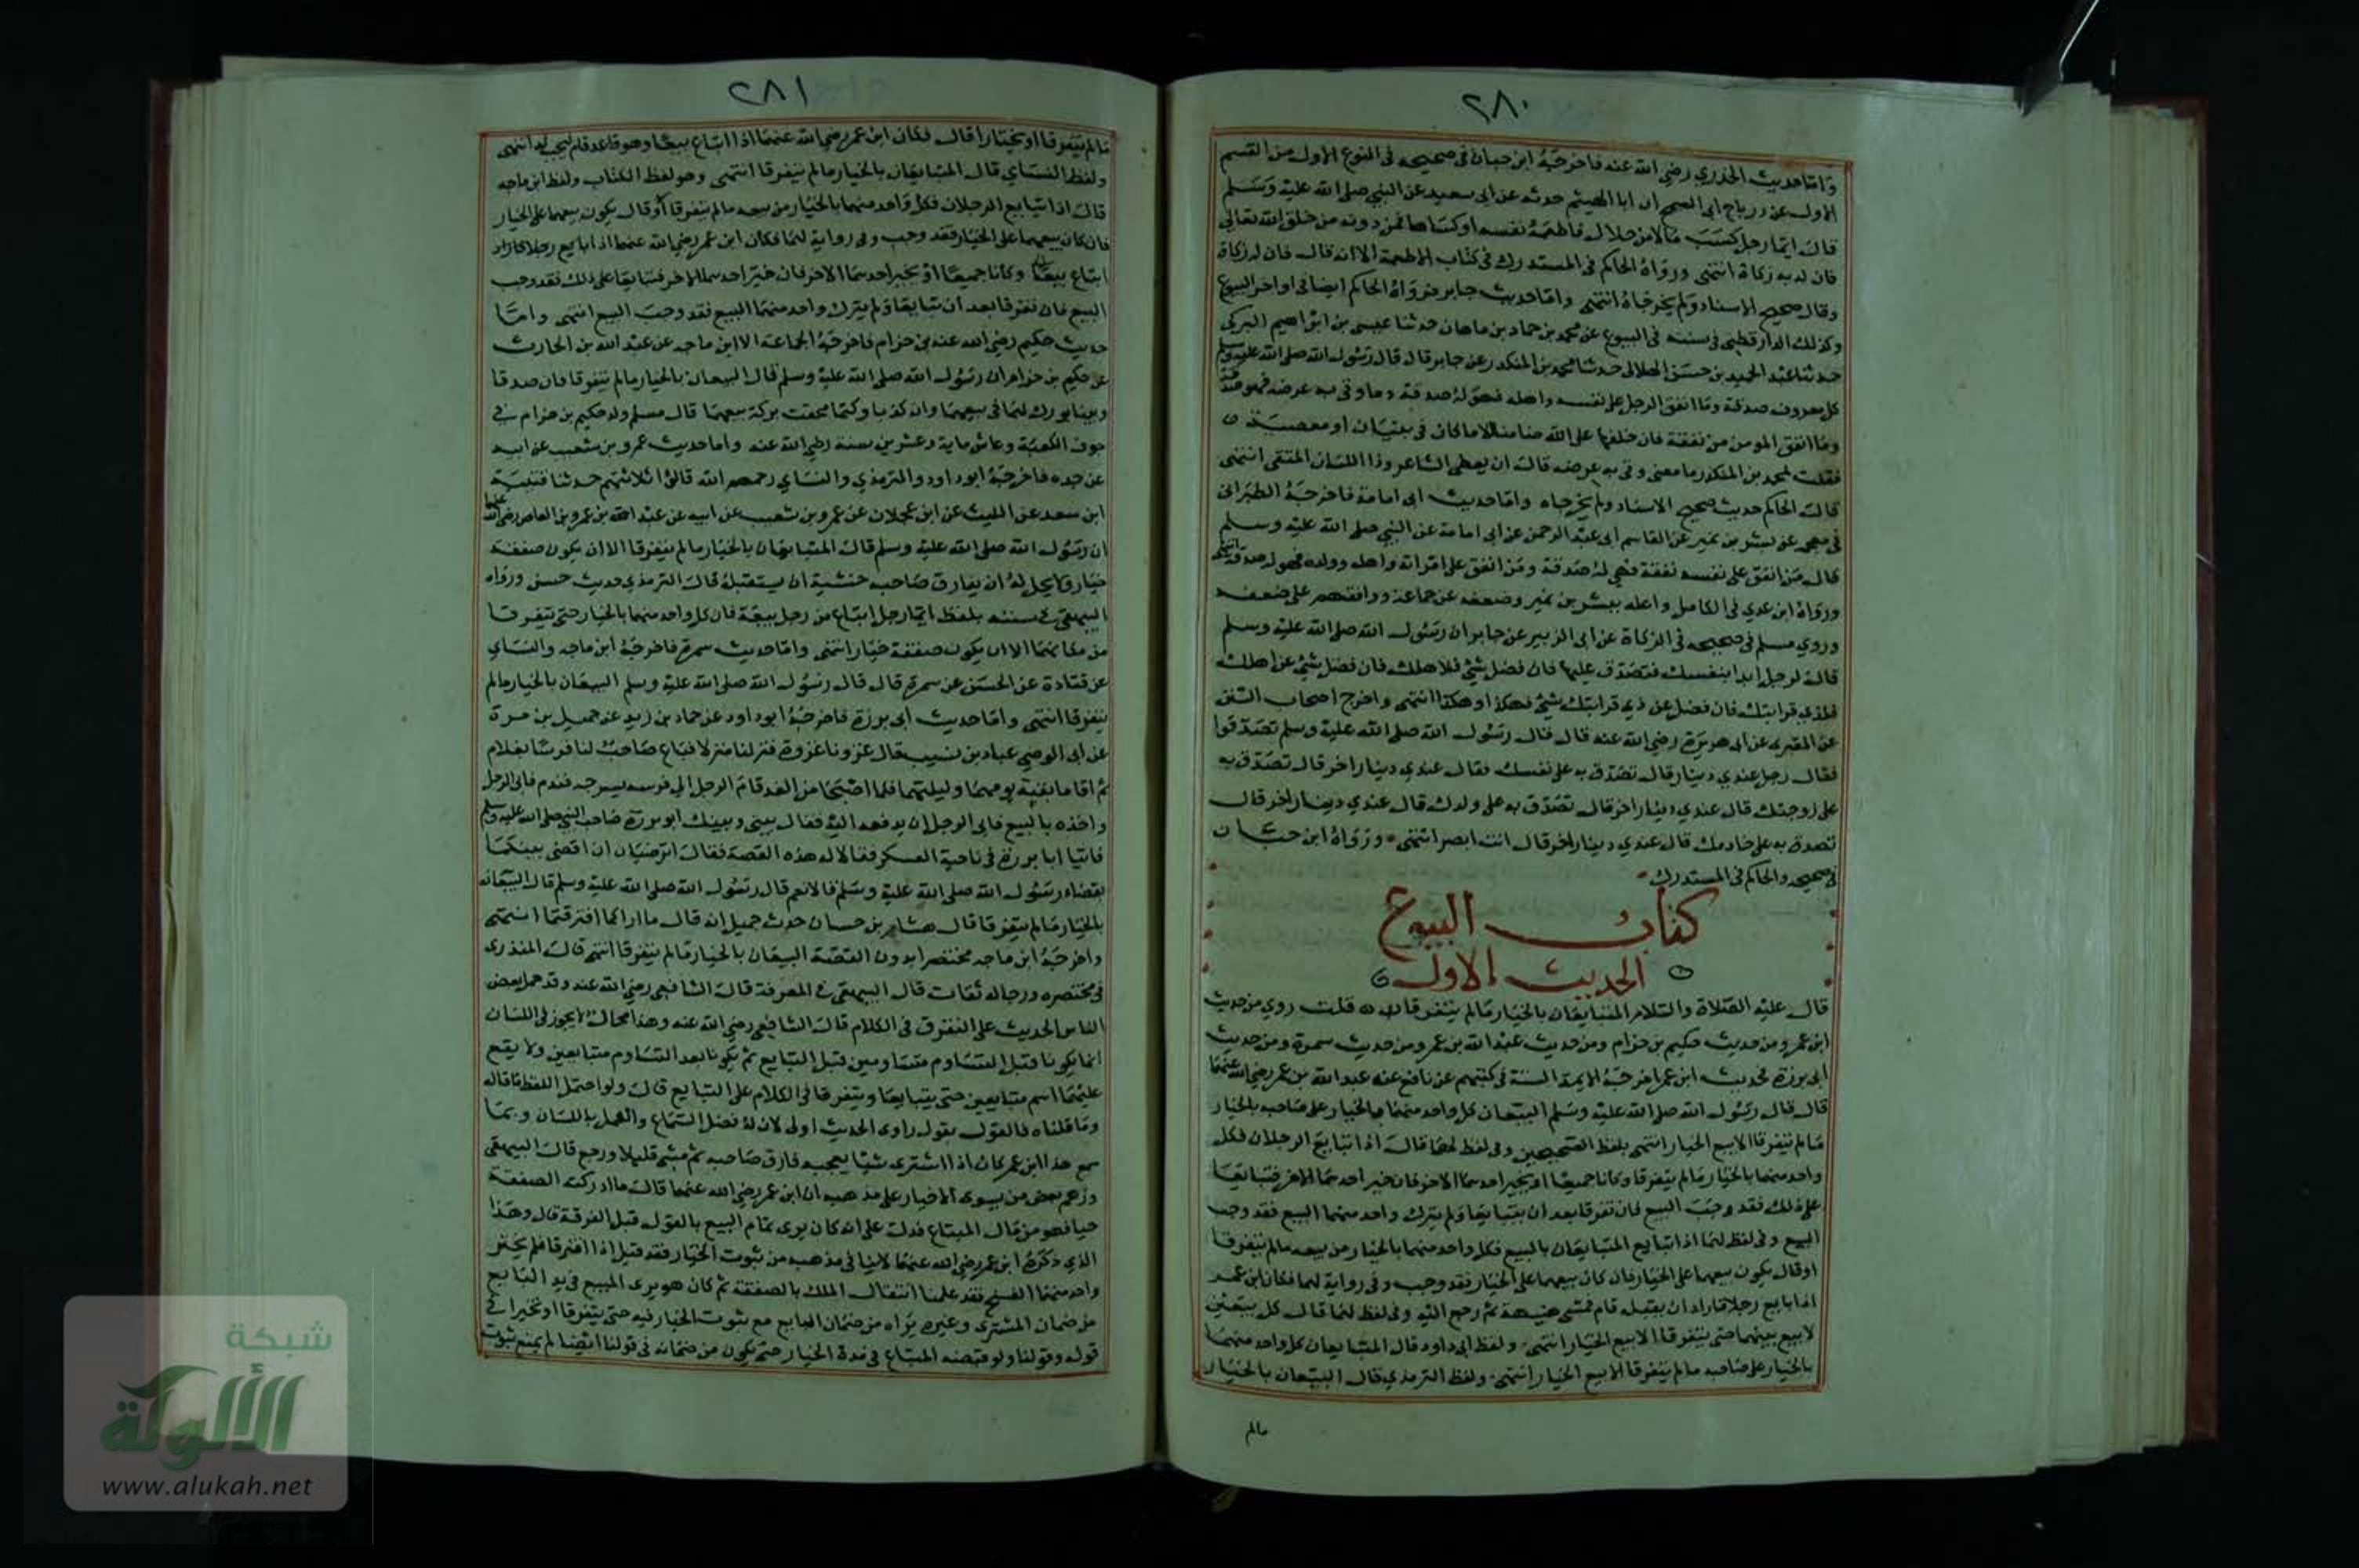 ٢٨٠
واما حديث الخدري رضي الله عنه فاخرجه ابن حبان في صحيحه في النوع الاول من القسم
الاول عن دراج ابي السمح ان ابا الهيثم حدثه عن ابي سعيد عن النبي صلى الله عليه وسلم
قال ايما رجل كسب مالا من حلال فاطعمه نفسه او كساها فمن دونه من خلق الله تعالى
فان له به زكاة انتهى ورواه الحاكم في المستدرك في كتاب الاطعمة الا انه قال فان له زكاة
وقال صحيح الاسناد ولم يخرجاه انتهى واما حديث جابر فرواه الحاكم ايضا في اواخر البيوع
وكذلك الدارقطني في سننه في البيوع عن محمد بن حماد بن ماهان حدثنا عيسى بن ابراهيم البركي
حدثنا عبد الحميد بن حسن الهلالي حدثنا محمد بن المنكدر عن جابر قال قال رسول الله صلى الله عليه وسلم
كل معروف صدقة وما انفق الرجل على نفسه واهله فهو له صدقة وما وقى به عرضه فهو صدقة
وما انفق المومن من نفقة فان خلفها على الله ضامنا الا ما كان في بنيان او معصية
فقلت لمحمد بن المنكدر ما معنى وقى به عرضه قال ان يعطي الشاعر وذا اللسان المتقى انتهى
قال الحاكم حديث صحيح الاسناد ولم يخرجاه واما حديث ابي امامة فاخرجه الطبراني
في معجمه عن بشر بن نمير عن القاسم ابي عبد الرحمن عن ابي امامة عن النبي صلى الله عليه وسلم
قال من انفق على نفسه نفقة فهي له صدقة ومن انفق على امراته واهله وولده فهو له صدقة انتهى
ورواه ابن عدي في الكامل واعله ببشر بن نمير وضعفه عن جماعة ووافقهم على ضعفه
وروي مسلم في صحيحه في الزكاة عن ابي الزبير عن جابر ان رسول الله صلى الله عليه وسلم
قال لرجل ابدا بنفسك فتصدق عليها فان فضل شيء فلاهلك فان فضل شيء عن اهلك
فلذي قرابتك فان فضل عن ذي قرابتك شيء فهكذا وهكذا انتهى واخرج اصحاب السنن
عن المقبري عن ابي هريرة رضي الله عنه قال قال رسول الله صلى الله عليه وسلم تصدقوا
فقال رجل عندي دينار قال تصدق به على نفسك فقال عندي دينار اخر قال تصدق به
على زوجتك قال عندي دينار اخر قال تصدق به على ولدك قال عندي دينار اخر قال
تصدق به على خادمك قال عندي دينار اخر قال انت ابصر انتهى ورواه ابن حبان
في صحيحه والحاكم في المستدرك
كتاب البيوع
الحديث الاول
قال عليه الصلاة والسلام المتبايعان بالخيار ما لم يتفرقا قلت روي من حديث
ابن عمر ومن حديث حكيم بن حزام ومن حديث عبد الله بن عمرو ومن حديث سمرة ومن حديث
ابي برزة فحديث ابن عمر اخرجه الايمة الستة في كتبهم عن نافع عنه عبد الله بن عمر رضي الله عنهما
قال قال رسول الله صلى الله عليه وسلم البيعان كل واحد منهما بالخيار على صاحبه بالخيار
ما لم يتفرقا الا بيع الخيار انتهى بلفظ الصحيحين وفي لفظ لهما قال اذا تبايع الرجلان فكل
واحد منهما بالخيار ما لم يتفرقا وكانا جميعا او يخير احدهما الاخر فان خير احدهما الاخر فتبايعا
على ذلك فقد وجب البيع فان تفرقا بعد ان يتبايعا ولم يترك واحد منهما البيع فقد وجب
البيع وفي لفظ لهما اذا تبايع المتبايعان بالبيع فكل واحد منهما بالخيار من بيعه ما لم يتفرقا
او قال يكون بيعهما على الخيار فان كان بيعهما على الخيار فقد وجب وفي رواية لهما فكان ابن عمر
اذا بايع رجلا فاراد ان يقيله قام فمشى هنيهة ثم رجع اليه وفي لفظ لهما قال كل بيعين
لا بيع بينهما حتى يتفرقا الا بيع الخيار انتهى ولفظ ابي داود قال المتبايعان كل واحد منهما
بالخيار على صاحبه ما لم يتفرقا الا بيع الخيار انتهى ولفظ الترمذي قال البيعان بالخيار
مالم
٢٨١
ما لم يتفرقا او يختارا قال فكان ابن عمر رضي الله عنهما اذا ابتاع بيعا وهو قاعد قام ليجب له انتهى
ولفظ النساي قال المتبايعان بالخيار ما لم يتفرقا انتهى وهو لفظ الكتاب ولفظ ابن ماجه
قال اذا تبايع الرجلان فكل واحد منهما بالخيار من بيعه ما لم يتفرقا او قال يكون بيعهما على الخيار
فان كان بيعهما على الخيار فقد وجب وفي رواية لهما فكان ابن عمر رضي الله عنهما اذا بايع رجلا
ابتاع بيعا وكانا جميعا او يخير احدهما الاخر فان خير احدهما الاخر فتبايعا على ذلك فقد وجب
البيع فان تفرقا بعد ان تبايعا ولم يترك واحد منهما البيع فقد وجب البيع انتهى واما
حديث حكيم رضي الله عنه بن حزام فاخرجه الجماعة الا ابن ماجه عن عبد الله بن الحارث
عن حكيم بن حزام ان رسول الله صلى الله عليه وسلم قال البيعان بالخيار ما لم يتفرقا فان صدقا
وبينا بورك لهما في بيعهما وان كذبا وكتما محقت بركة بيعهما قال مسلم ولد حكيم بن حزام في
جوف الكعبة وعاش ماية وعشرين سنة رضي الله عنه واما حديث عمرو بن شعيب عن ابيه
عن جده فاخرجه ابو داود والترمذي والنساي رحمهم الله قالوا ثلاثتهم حدثنا قتيبة
ابن سعد عن الليث عن ابن عجلان عن عمرو بن شعيب عن ابيه عن عبد الله بن عمرو بن العاص رضي الله عنهما
ان رسول الله صلى الله عليه وسلم قال المتبايعان بالخيار ما لم يتفرقا الا ان يكون صفقة
خيار ولا يحل له ان يفارق صاحبه خشية ان يستقيله قال الترمذي حديث حسن ورواه
البيهقي في سننه بلفظ ايما رجل ابتاع من رجل بيعة فان كل واحد منهما بالخيار حتى يتفرقا
من مكانهما الا ان يكون صفقة خيار انتهى واما حديث سمرة فاخرجه ابن ماجه والنساي
عن قتادة عن الحسن عن سمرة قال قال رسول الله صلى الله عليه وسلم البيعان بالخيار ما لم
يتفرقا انتهى واما حديث ابي برزة فاخرجه ابو داود عن حماد بن زيد عن جميل بن مرة
عن ابي الوضي عباد بن نسيب قال غزونا غزوة فنزلنا منزلا فباع صاحب لنا فرسا بغلام
ثم اقاما بقية يومهما وليلتهما فلما اصبحا من الغد قام الرجل الى فرسه يسرجه فندم فاتى الرجل
واخذه بالبيع فابى الرجل ان يدفعه اليه فقال بيني وبينك ابو برزة صاحب النبي صلى الله عليه وسلم
فاتيا ابا برزة في ناحية العسكر فقالا له هذه القصة فقال اترضيان ان اقضي بينكما
بقضاء رسول الله صلى الله عليه وسلم قالا نعم قال رسول الله صلى الله عليه وسلم قال البيعان
بالخيار ما لم يتفرقا قال هشام بن حسان حدث جميل انه قال ما اراكما افترقتما انتهى
واخرجه ابن ماجه مختصرا بدون القصة البيعان بالخيار ما لم يتفرقا انتهى قال المنذري
في مختصره ورجاله ثقات قال البيهقي في المعرفة قال الشافعي رضي الله عنه وقد حمل بعض
الناس الحديث على التفرق في الكلام قال الشافعي رضي الله عنه وهذا محال لا يجوز في اللسان
انما يكونا قبل التساوم متساومين قبل التبايع ثم يكونا بعد التساوم متبايعين ولا يقع
عليهما اسم متبايعين حتى يتبايعا ويتفرقا في الكلام على التبايع قال ولو احتمل اللفظ ما قاله
وما قلناه فالقول بقول راوي الحديث اولى لان له فضل السماع والعلم باللسان وبما
سمع هذا ابن عمر كان اذا اشترى شيا يعجبه فارق صاحبه ثم مشى قليلا ورجع قال البيهقي
وزعم بعض من يسوي الاخبار على مذهبه ان ابن عمر رضي الله عنهما قال ما ادركت الصفقة
حيا فهو من مال المبتاع فدل على انه كان يرى تمام البيع بالقول قبل الفرقة قال وهذا
الذي ذكره ابن عمر رضي الله عنهما لا ينافي مذهبه من ثبوت الخيار فقد قيل اذا افترقا فلم يختر
واحد منهما الفسخ فقد علمنا انتقال الملك بالصفقة ثم كان هو يرى المبيع في يد البايع
من ضمان المشتري وغيره يراه من ضمان البايع مع ثبوت الخيار فيه حتى يتفرقا او تخيرا في
قوله وقولنا ولو قبضه المبتاع في مدة الخيار حتى يكون من ضمانه في قولنا ايضا لم يمنع ثبوت
شبكة
الألوكة
www.alukah.net